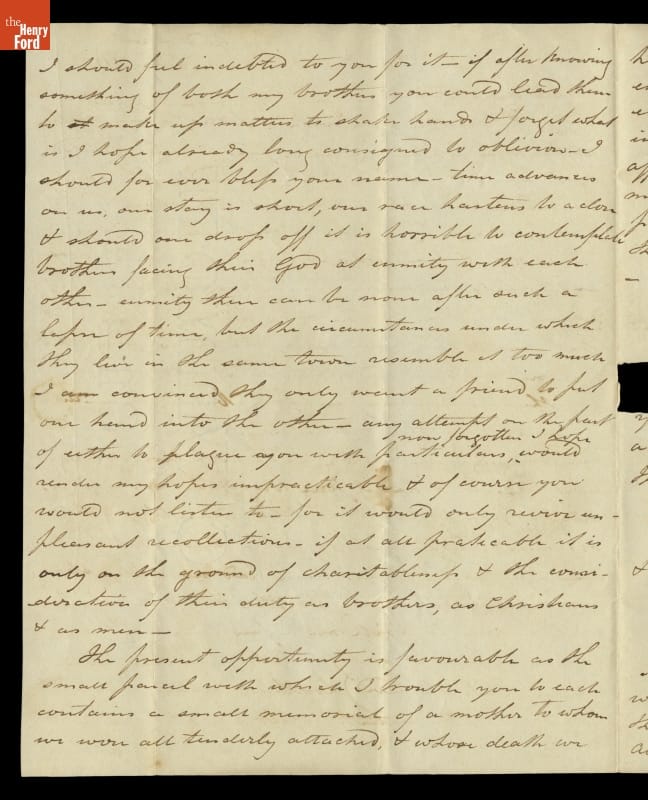 the
Henry
Ford
I should feel indebted to you for it – if after knowing
something of both my brothers you could lead them
to make up matters to shake hands & forget what
is I hope already long consigned to oblivion – I
should for ever bless your name – time advances
on us, our stay is short, our race hastens to a close
& should one drop off it is horrible to contemplate
brothers facing their God at enmity with each
other – enmity there can be none after such a
lapse of time, but the circumstances under which
they live in the same town resemble it too much
I am convinced they only want a friend to put
one hand into the other – any attempt on the part
now forgotten I hope
of either to plague you with particulars, would
render my hopes impracticable & of course you
would not listen to – for it would only revive un-
pleasant recollections – if at all praticable it is
only on the ground of charitableness & the consi-
deration of their duty as brothers, as Christians
& as men –
The present opportunity is favourable as the
small parcel with which I trouble you to each
contains a small memorial of a mother to whom
we were all tenderly attached, & whose death we